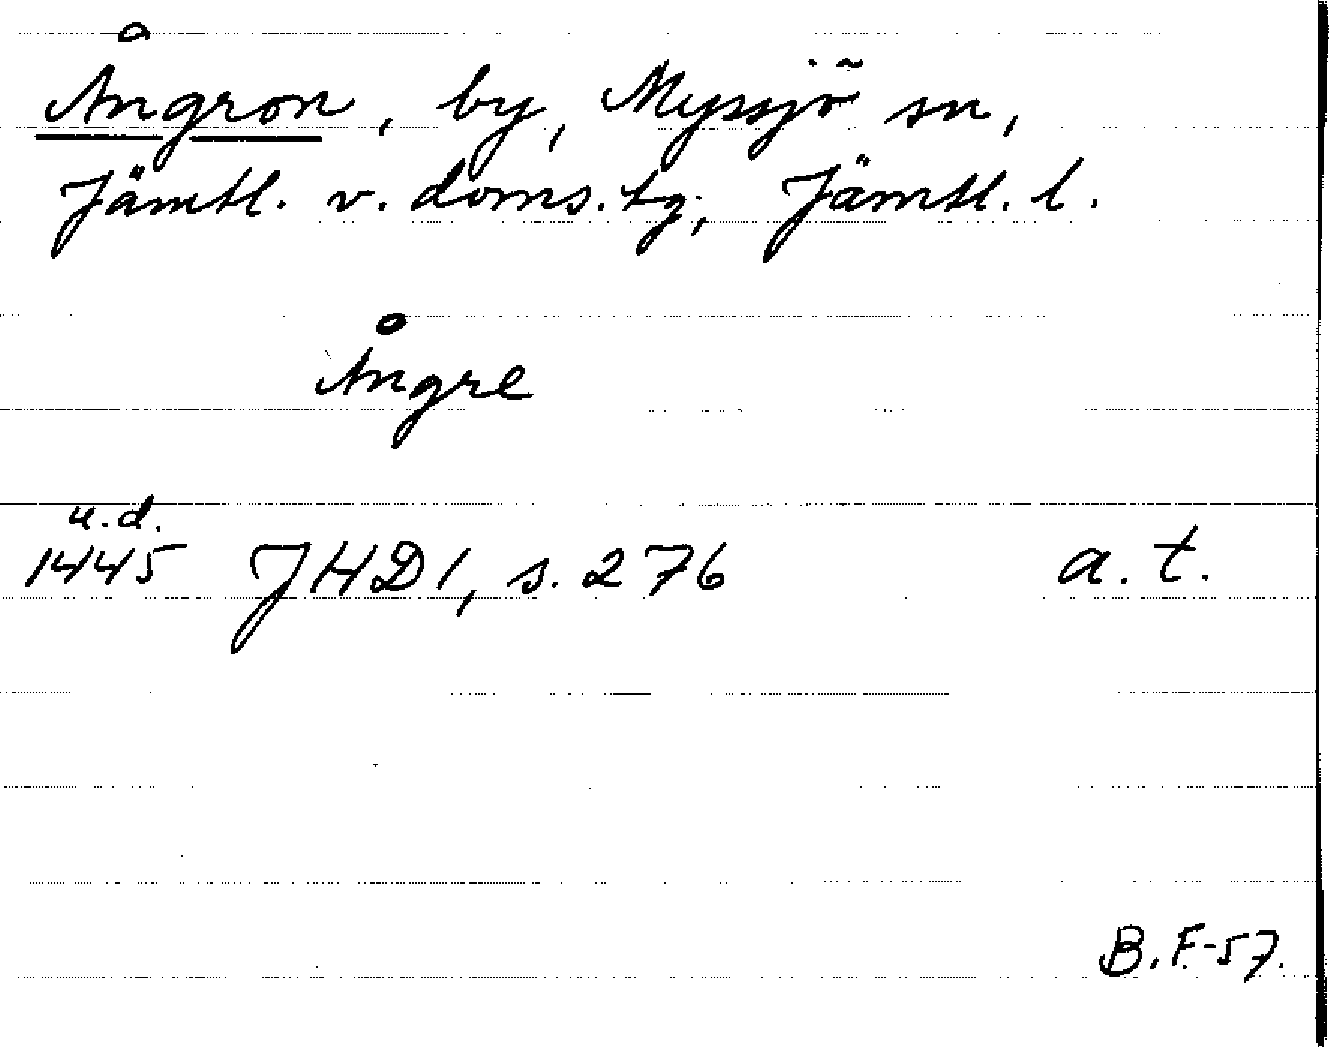 Ångron, by, Myssjö sn,
Jämtl. v. doms. tg, Jämtl. l.
Ångre
u.d.
1445 JHD1, s. 276 a. t.
B.F.-57.